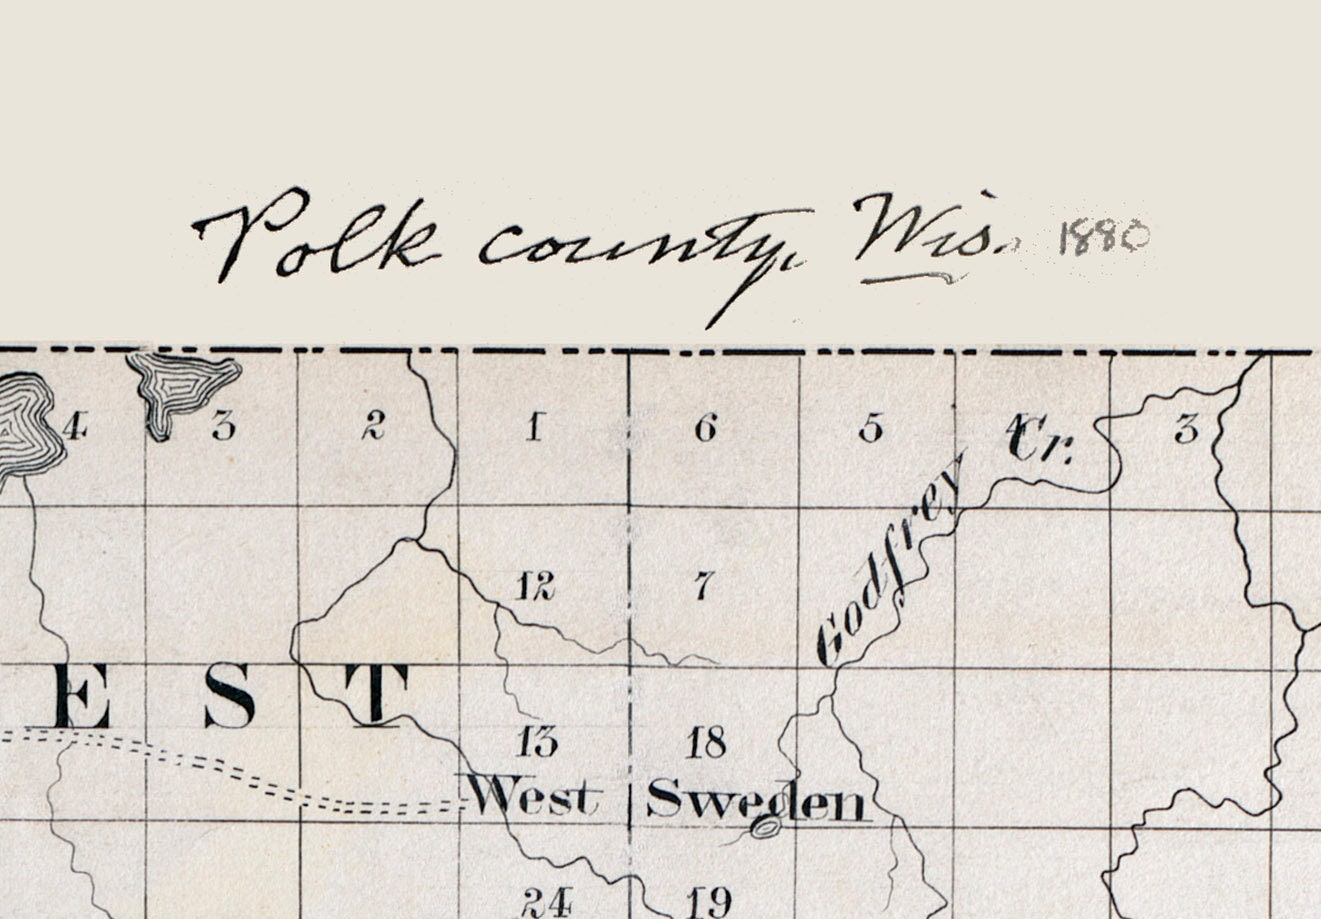 Polk county, Wis. 1880
4 3 2 1 6 5 4 3
Godfrey Cr.
12 7
E S T
13 18
West Sweden
24 19